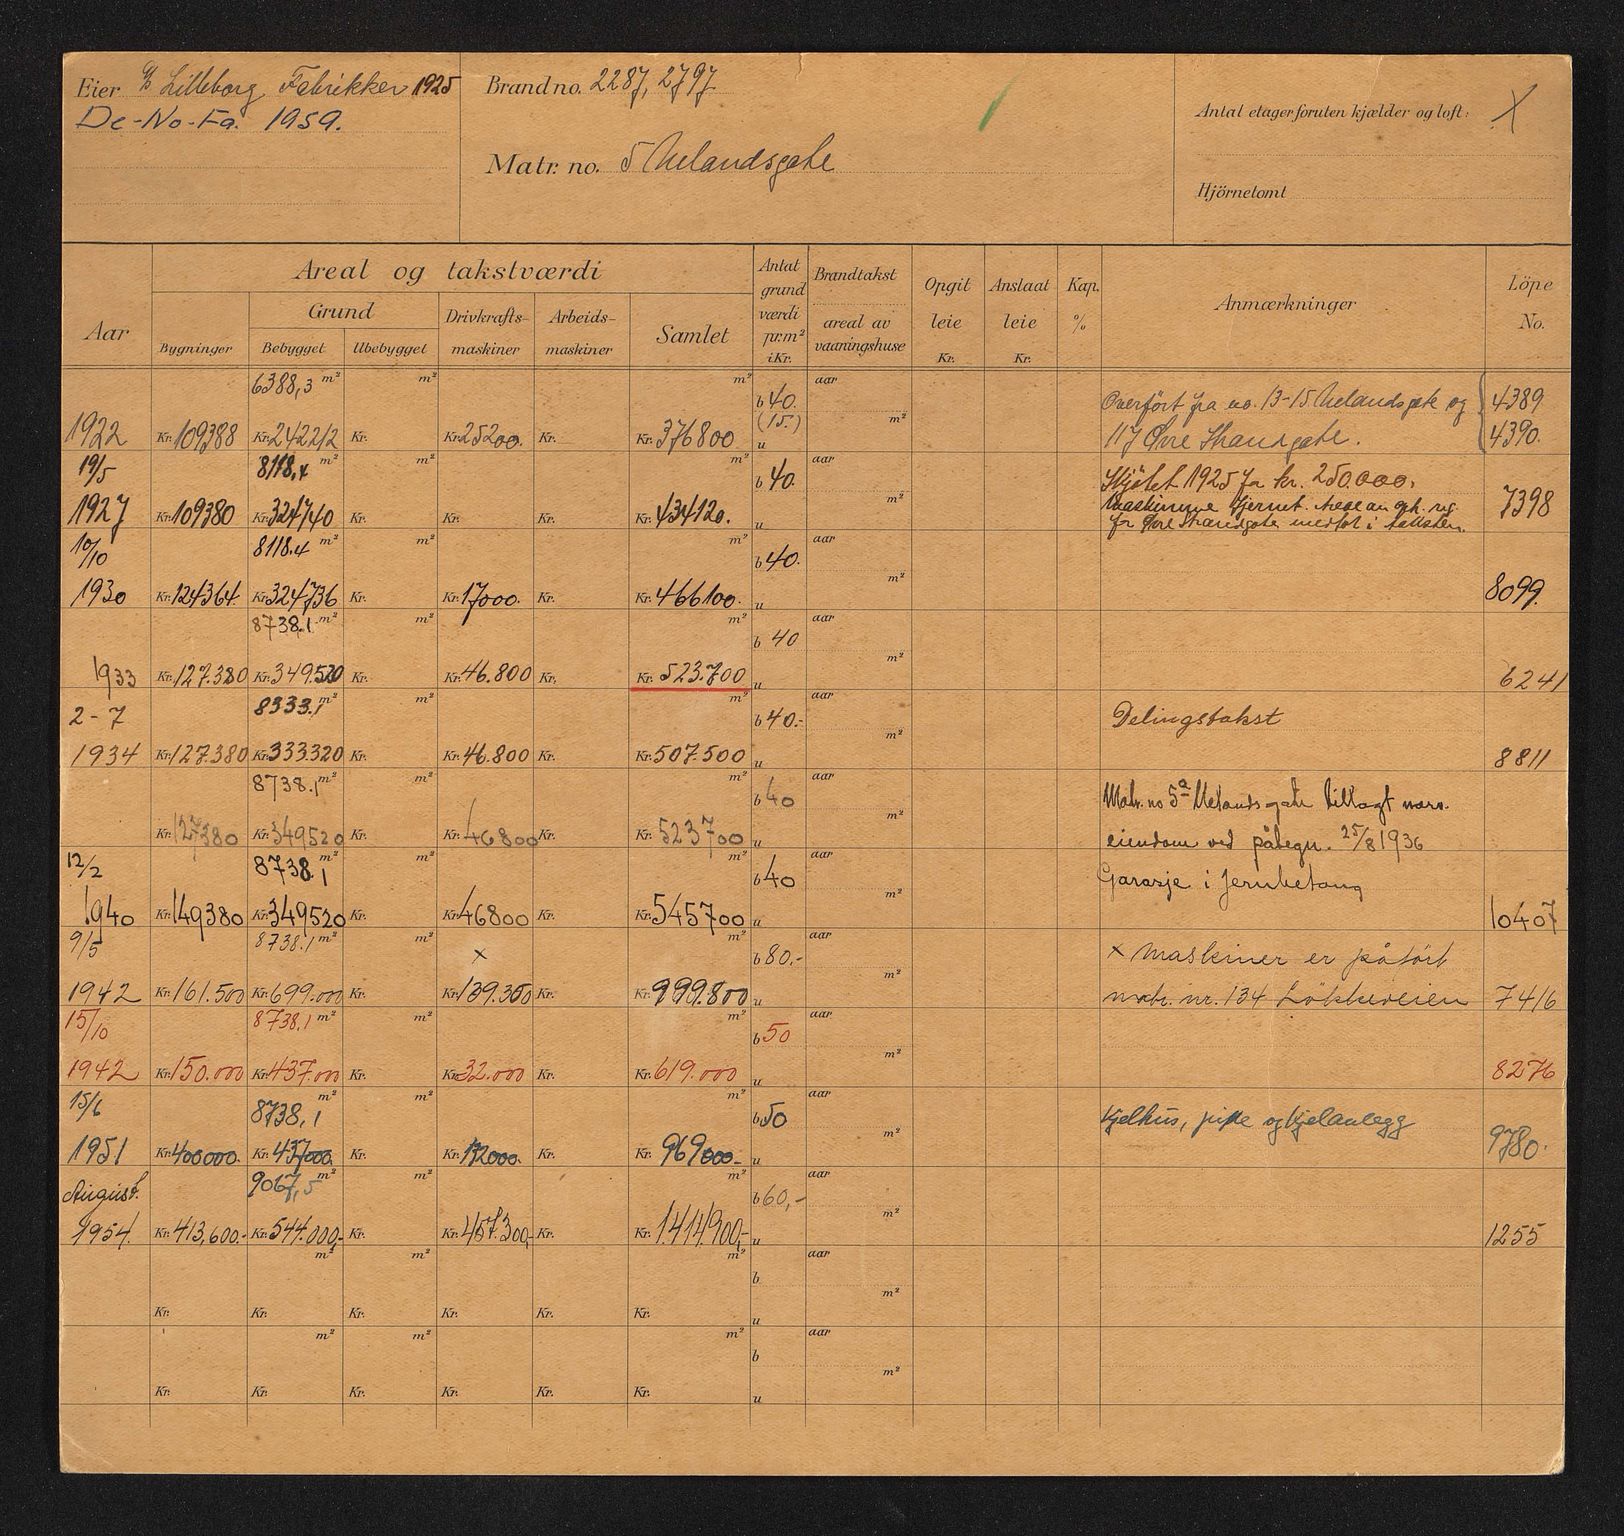 Eier A/S Lilleborg Fabrikker 1925
De-No-Fa. 1959.
Brand no. 2287, 2797
Matr. no. 5 Melandsgate
Antal etager foruten kjælder og loft: X
Hjörnetomt
Areal og takstværdi
Grund
Aar
Bygninger
Bebygget
Ubebygget
Drivkrafts-maskiner
Arbeids-maskiner
Samlet
Antat grund værdi pr. m² i Kr.
Brandtakst
areal av vaaningshuse
Opgit leie Kr.
Anslaat leie Kr.
Kap. %
Anmærkninger
Löpe No.
6388,3 m² m² m² b 40. aar Overført fra no. 13-15 Melandsgate og 4389
1922 Kr. 109388 Kr. 242212 Kr. Kr. 25200. Kr. Kr. 376800 (15.) u m² 117 Øvre Strandgate. 4390.
19/5 8118,4 m² m² m² b 40. aar Skjötet 1925 for kr. 250.000.
1927 Kr. 109380 Kr. 324740 Kr. Kr. Kr. Kr. 434120. u m² Maskinene fjernet. 7398
for Øvre Strandgate medtat i taksten.
10/10 8118.4 m² m² m² b 40. aar
1930 Kr. 124364. Kr. 324736 Kr. Kr. 17000. Kr. Kr. 466100. u m² 8099.
8738.1 m² m² m² b 40 aar
1933 Kr. 127.380 Kr. 349.520 Kr. Kr. 46.800 Kr. Kr. 523.700 u m² 6241
2-7 8333.1 m² m² m² b 40.- aar Delingstakst
1934 Kr. 127.380 Kr. 333.320 Kr. Kr. 46.800 Kr. Kr. 507.500 u m² 8811
8738.1 m² m² m² b 40 aar Matr. no 5a Melandsgate tillagt nærv.
Kr. 127380 Kr. 349520 Kr. Kr. 46800 Kr. Kr. 523700 u m² eiendom ved påtegn. 25/8 1936
12/2 8738.1 m² m² m² b 40 aar Garasje i jernbetong
1940 Kr. 149380 Kr. 349520 Kr. Kr. 46800 Kr. Kr. 545700 u m² 10407
9/5 8738.1 m² m² x m² b 80.- aar x maskiner er påført
1942 Kr. 161.500 Kr. 699.000 Kr. Kr. 139.300 Kr. Kr. 999.800 u m² matr. nr. 134 Lökkeveien 7416
15/10 8738.1 m² m² m² b 50 aar
1942 Kr. 150.000 Kr. 437.000 Kr. Kr. 32.000 Kr. Kr. 619.000 u m² 8276
15/6 8738,1 m² m² m² b 50 aar Kjelhus, pipe og kjelanlegg
1951 Kr. 400000. Kr. 437000. Kr. Kr. 132000. Kr. Kr. 969000- u m² 9780.
August. 9067,5 m² m² m² b 60,- aar
1954. Kr. 413,600.- Kr. 544.000,- Kr. Kr. 457.300,- Kr. Kr. 1.414.900,- u m² 1255
m² m² m² b aar
Kr. Kr. Kr. Kr. Kr. Kr. u m²
m² m² m² b aar
Kr. Kr. Kr. Kr. Kr. Kr. u m²